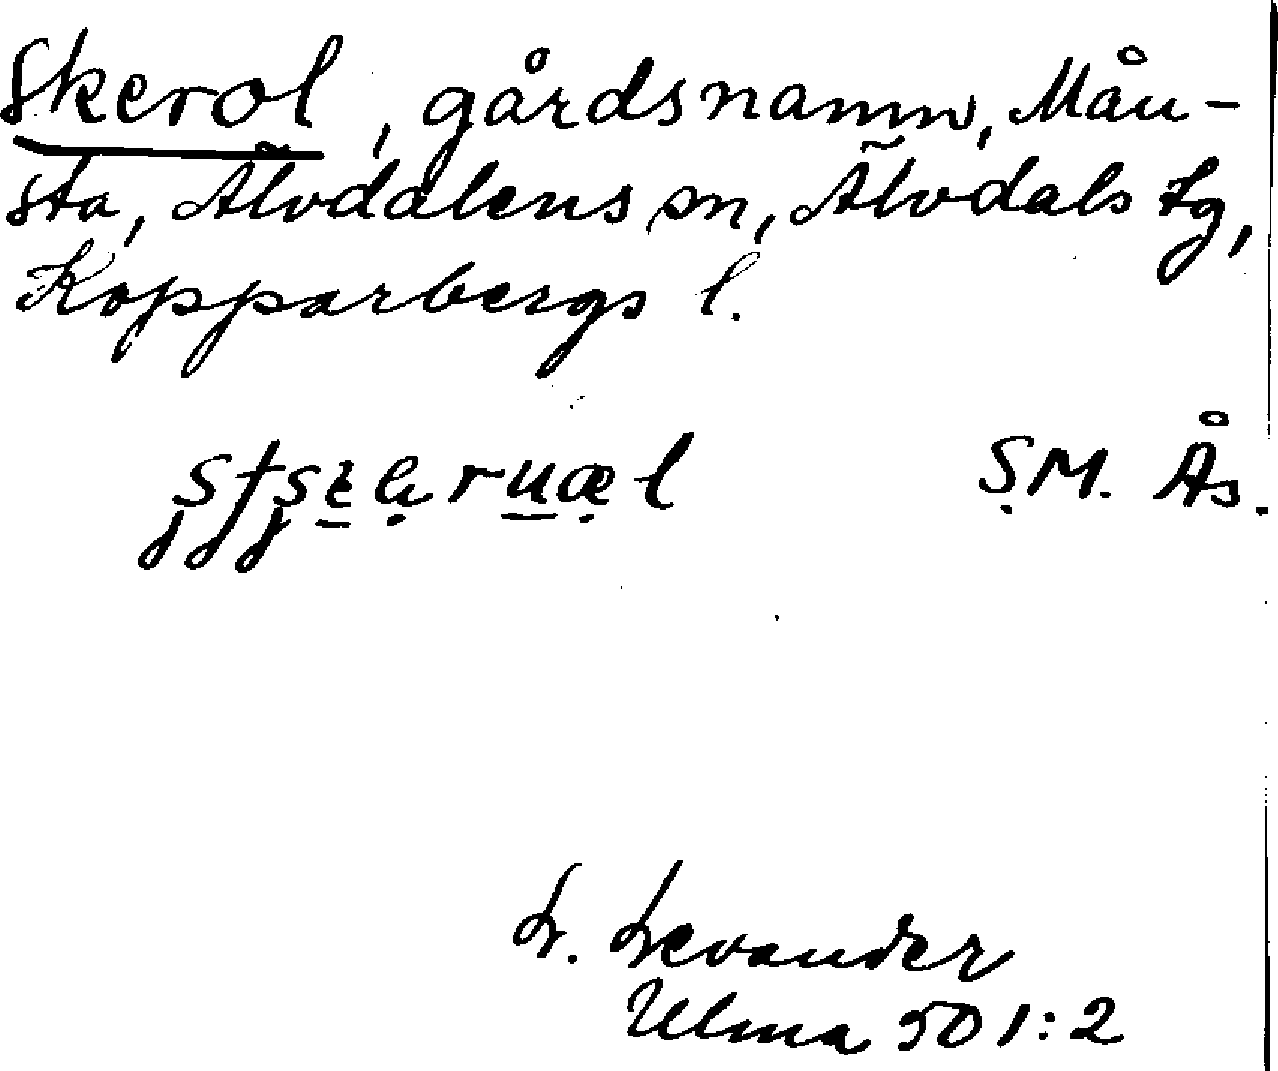 Skerol, gårdsnamn, Mån-
sta, Älvdalens sn, Älvdals tg,
Kopparbergs l.
SM. Ås.
L. Levander
Ulma 501:2